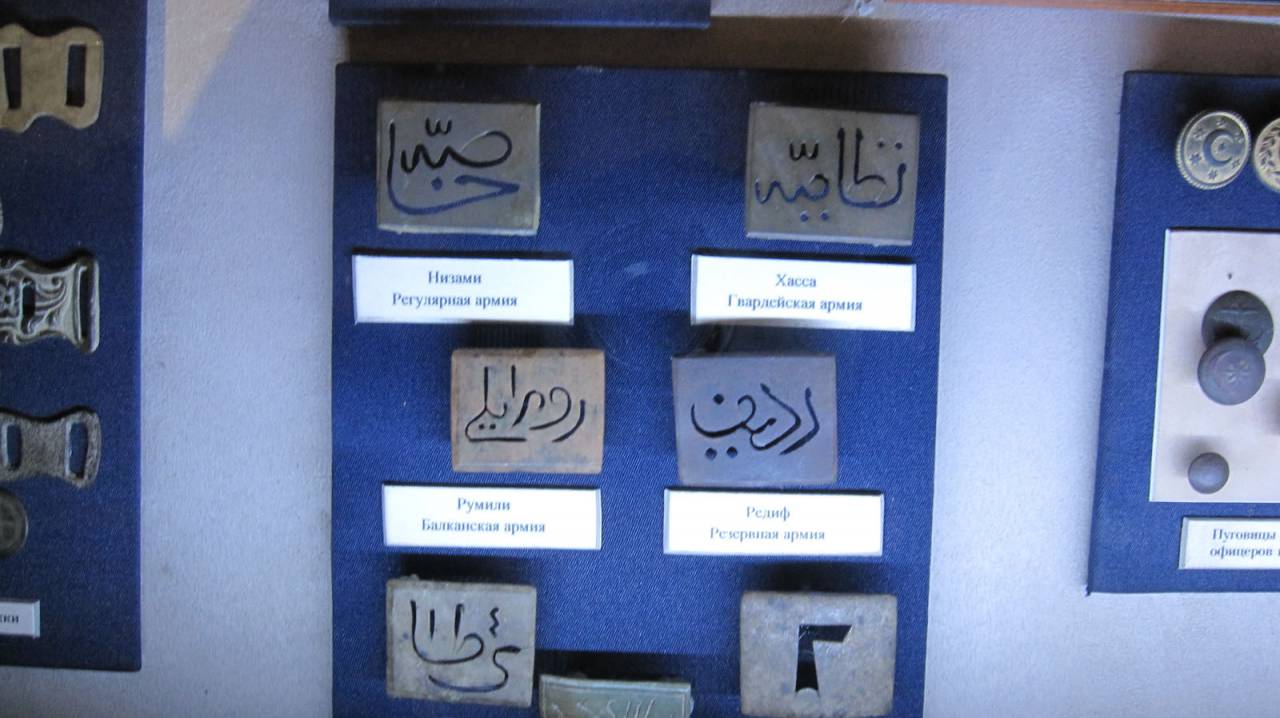 خاصّه
نظاميّه
Низами
Регулярная армия
Хасса
Гвардейская армия
روم ايلى
رديف
Румили
Балканская армия
Редиф
Резервная армия
٢
Пуговицы
офицеров